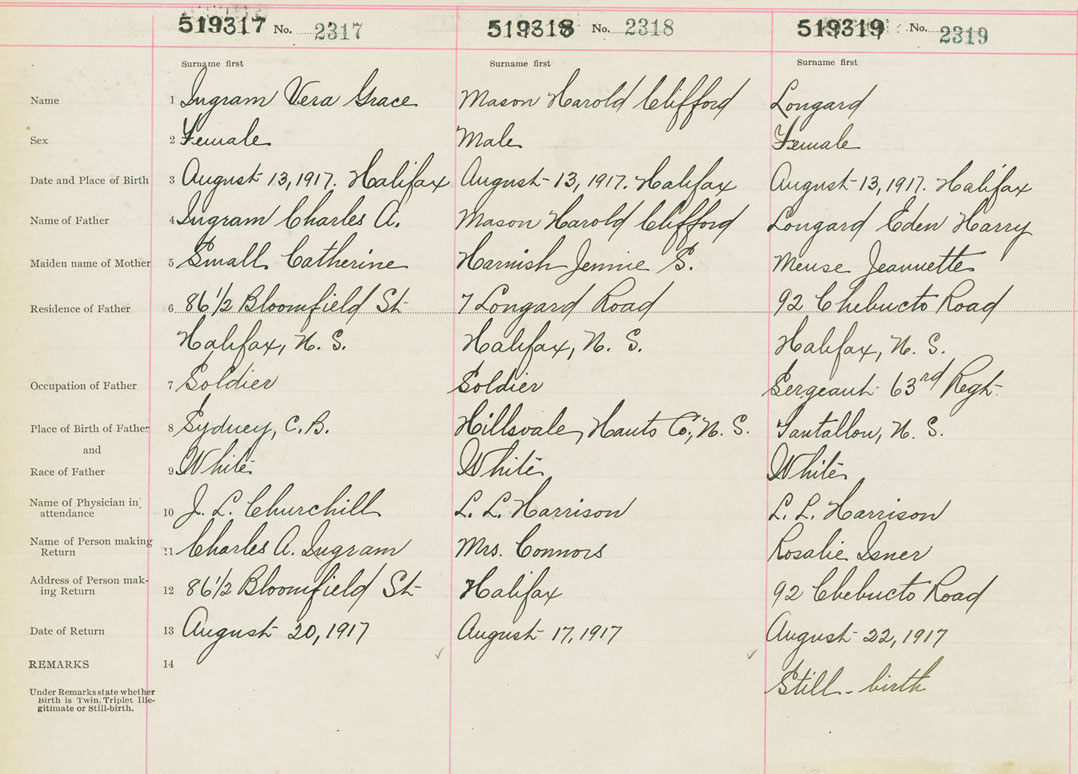 519317 No. 2317 519318 No. 2318 519319 No. 2319
Surname first Surname first Surname first
Name 1 Ingram Vera Grace Mason Harold Clifford Longard
Sex 2 Female Male Female
Date and Place of Birth 3 August 13, 1917. Halifax August 13, 1917. Halifax August 13, 1917. Halifax
Name of Father 4 Ingram Charles A. Mason Harold Clifford Longard Eden Harry
Maiden name of Mother 5 Small Catherine Harnish Jennie S. Meuse Jeannette
Residence of Father 6 86 1/2 Bloomfield St 7 Longard Road 92 Chebucto Road
Halifax, N. S. Halifax, N. S. Halifax, N. S.
Occupation of Father 7 Soldier Soldier Sergeant 63rd Regt.
Place of Birth of Father 8 Sydney, C.B. Hillsvale, Hants Co., N. S. Tantallon, N. S.
and
Race of Father 9 White White White
Name of Physician in
attendance 10 J. L. Churchill L. L. Harrison L. L. Harrison
Name of Person making
Return 11 Charles A. Ingram Mrs. Connors Rosalie Isner
Address of Person mak-
ing Return 12 86 1/2 Bloomfield St Halifax 92 Chebucto Road
Date of Return 13 August 20, 1917 August 17, 1917 August 22, 1917
REMARKS 14
Still-birth
Under Remarks state whether
Birth is Twin, Triplet Ille-
gitimate or Still-birth.